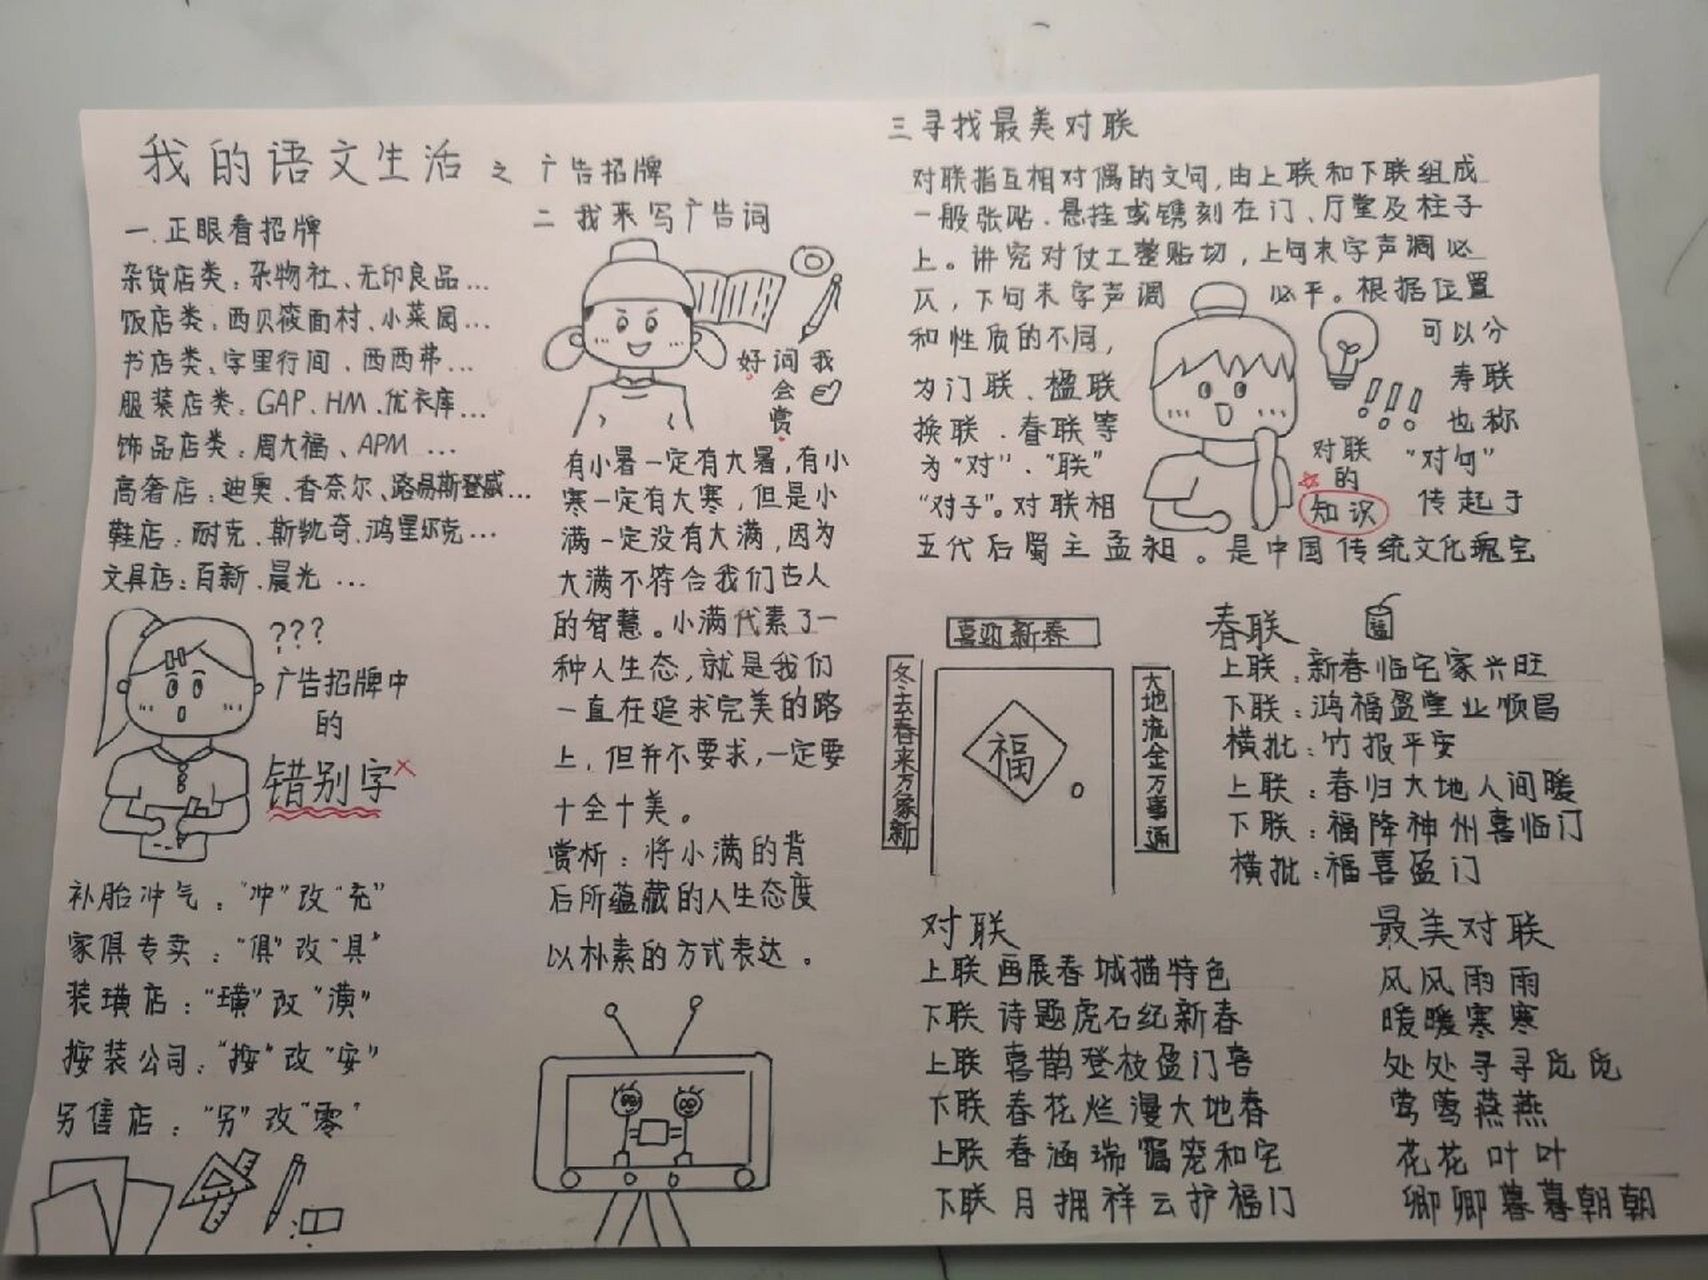 我的语文生活之广告招牌
一.正眼看招牌
杂货店类:杂物社、无印良品...
饭店类:西贝莜面村、小菜园...
书店类:字里行间、西西弗...
服装店类:GAP、HM、优衣库...
饰品店类:周大福、APM...
高奢店:迪奥、香奈尔、路易斯登威...
鞋店:耐克、斯凯奇、鸿星尔克...
文具店:百新、晨光...
???
广告招牌中
的
错别字×
补胎冲气:“冲”改“充”
家俱专卖:“俱”改“具”
装璜店:“璜”改“潢”
按装公司:“按”改“安”
另售店:“另”改“零”
二 我来写广告词
好词我
会
赏
有小暑一定有大暑,有小
寒一定有大寒,但是小
满一定没有大满,因为
大满不符合我们古人
的智慧。小满代素了一
种人生态,就是我们
一直在追求完美的路
上,但并不要求,一定要
十全十美。
赏析:将小满的背
后所蕴藏的人生态度
以朴素的方式表达。
三寻找最美对联
对联指互相对偶的文句,由上联和下联组成
一般张贴.悬挂或镌刻在门、厅堂及柱子
上。讲究对仗工整贴切,上句末字声调必
仄,下句末字声调必平。根据位置
和性质的不同,可以分
为门联、楹联寿联
换联.春联等也称
为“对”.“联”“对句”
“对子”。对联相传起于
五代后蜀主孟昶。是中国传统文化瑰宝
对联
的
知识
喜迎新春
冬去春来万象新
福
大地流金万事通
春联
福
上联:新春临宅家兴旺
下联:鸿福盈堂业顺昌
横批:竹报平安
上联:春归大地人间暖
下联:福降神州喜临门
横批:福喜盈门
对联
上联 画展春城描特色
下联 诗题虎石纪新春
上联 喜鹊登枝盈门喜
下联 春花烂漫大地春
上联 春涵瑞霭笼和宅
下联 月拥祥云护福门
最美对联
风风雨雨
暖暖寒寒
处处寻寻觅觅
莺莺燕燕
花花叶叶
卿卿暮暮朝朝